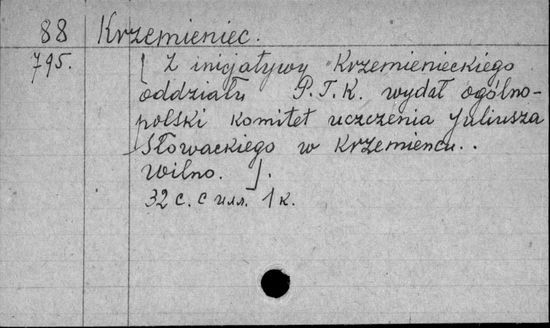 88 Krzemieniec.
795. [ Z inicjatywy Krzemienieckiego
oddziału P.T.K. wydał ogólno-
polski komitet uczczenia Juliusza
Słowackiego w Krzemieńcu..
Wilno. ].
32 с. с илл. 1 к.